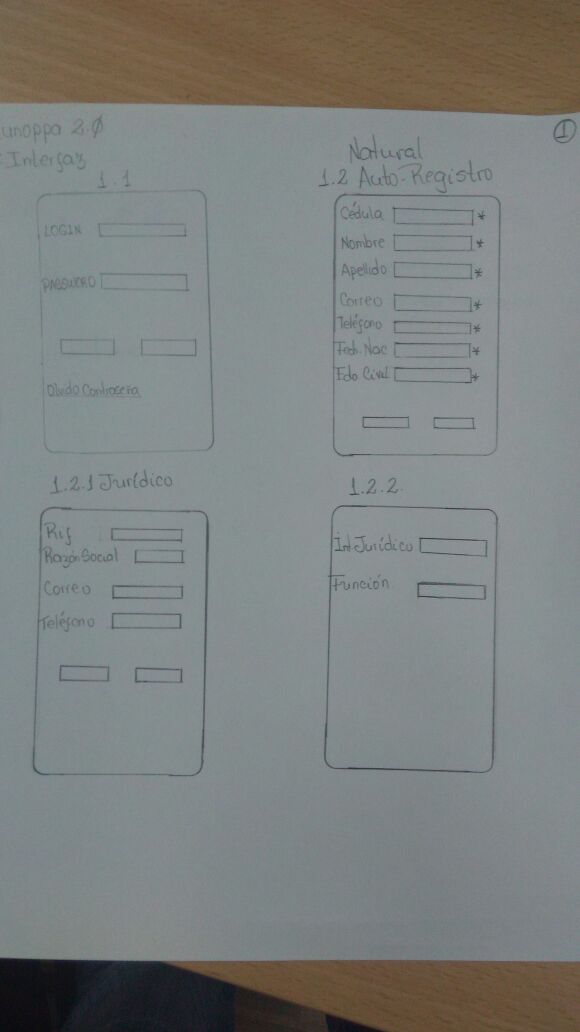 unoppa 2.0
Interfaz
1
1.1
LOGIN
PASSWORD
Olvido Contraseña
Natural
1.2 Auto-Registro
Cédula *
Nombre *
Apellido *
Correo *
Teléfono *
Fech. Nac *
Edo Civil *
1.2.1 Jurídico
Rif
Razón Social
Correo
Teléfono
1.2.2.
Int Jurídico
Función